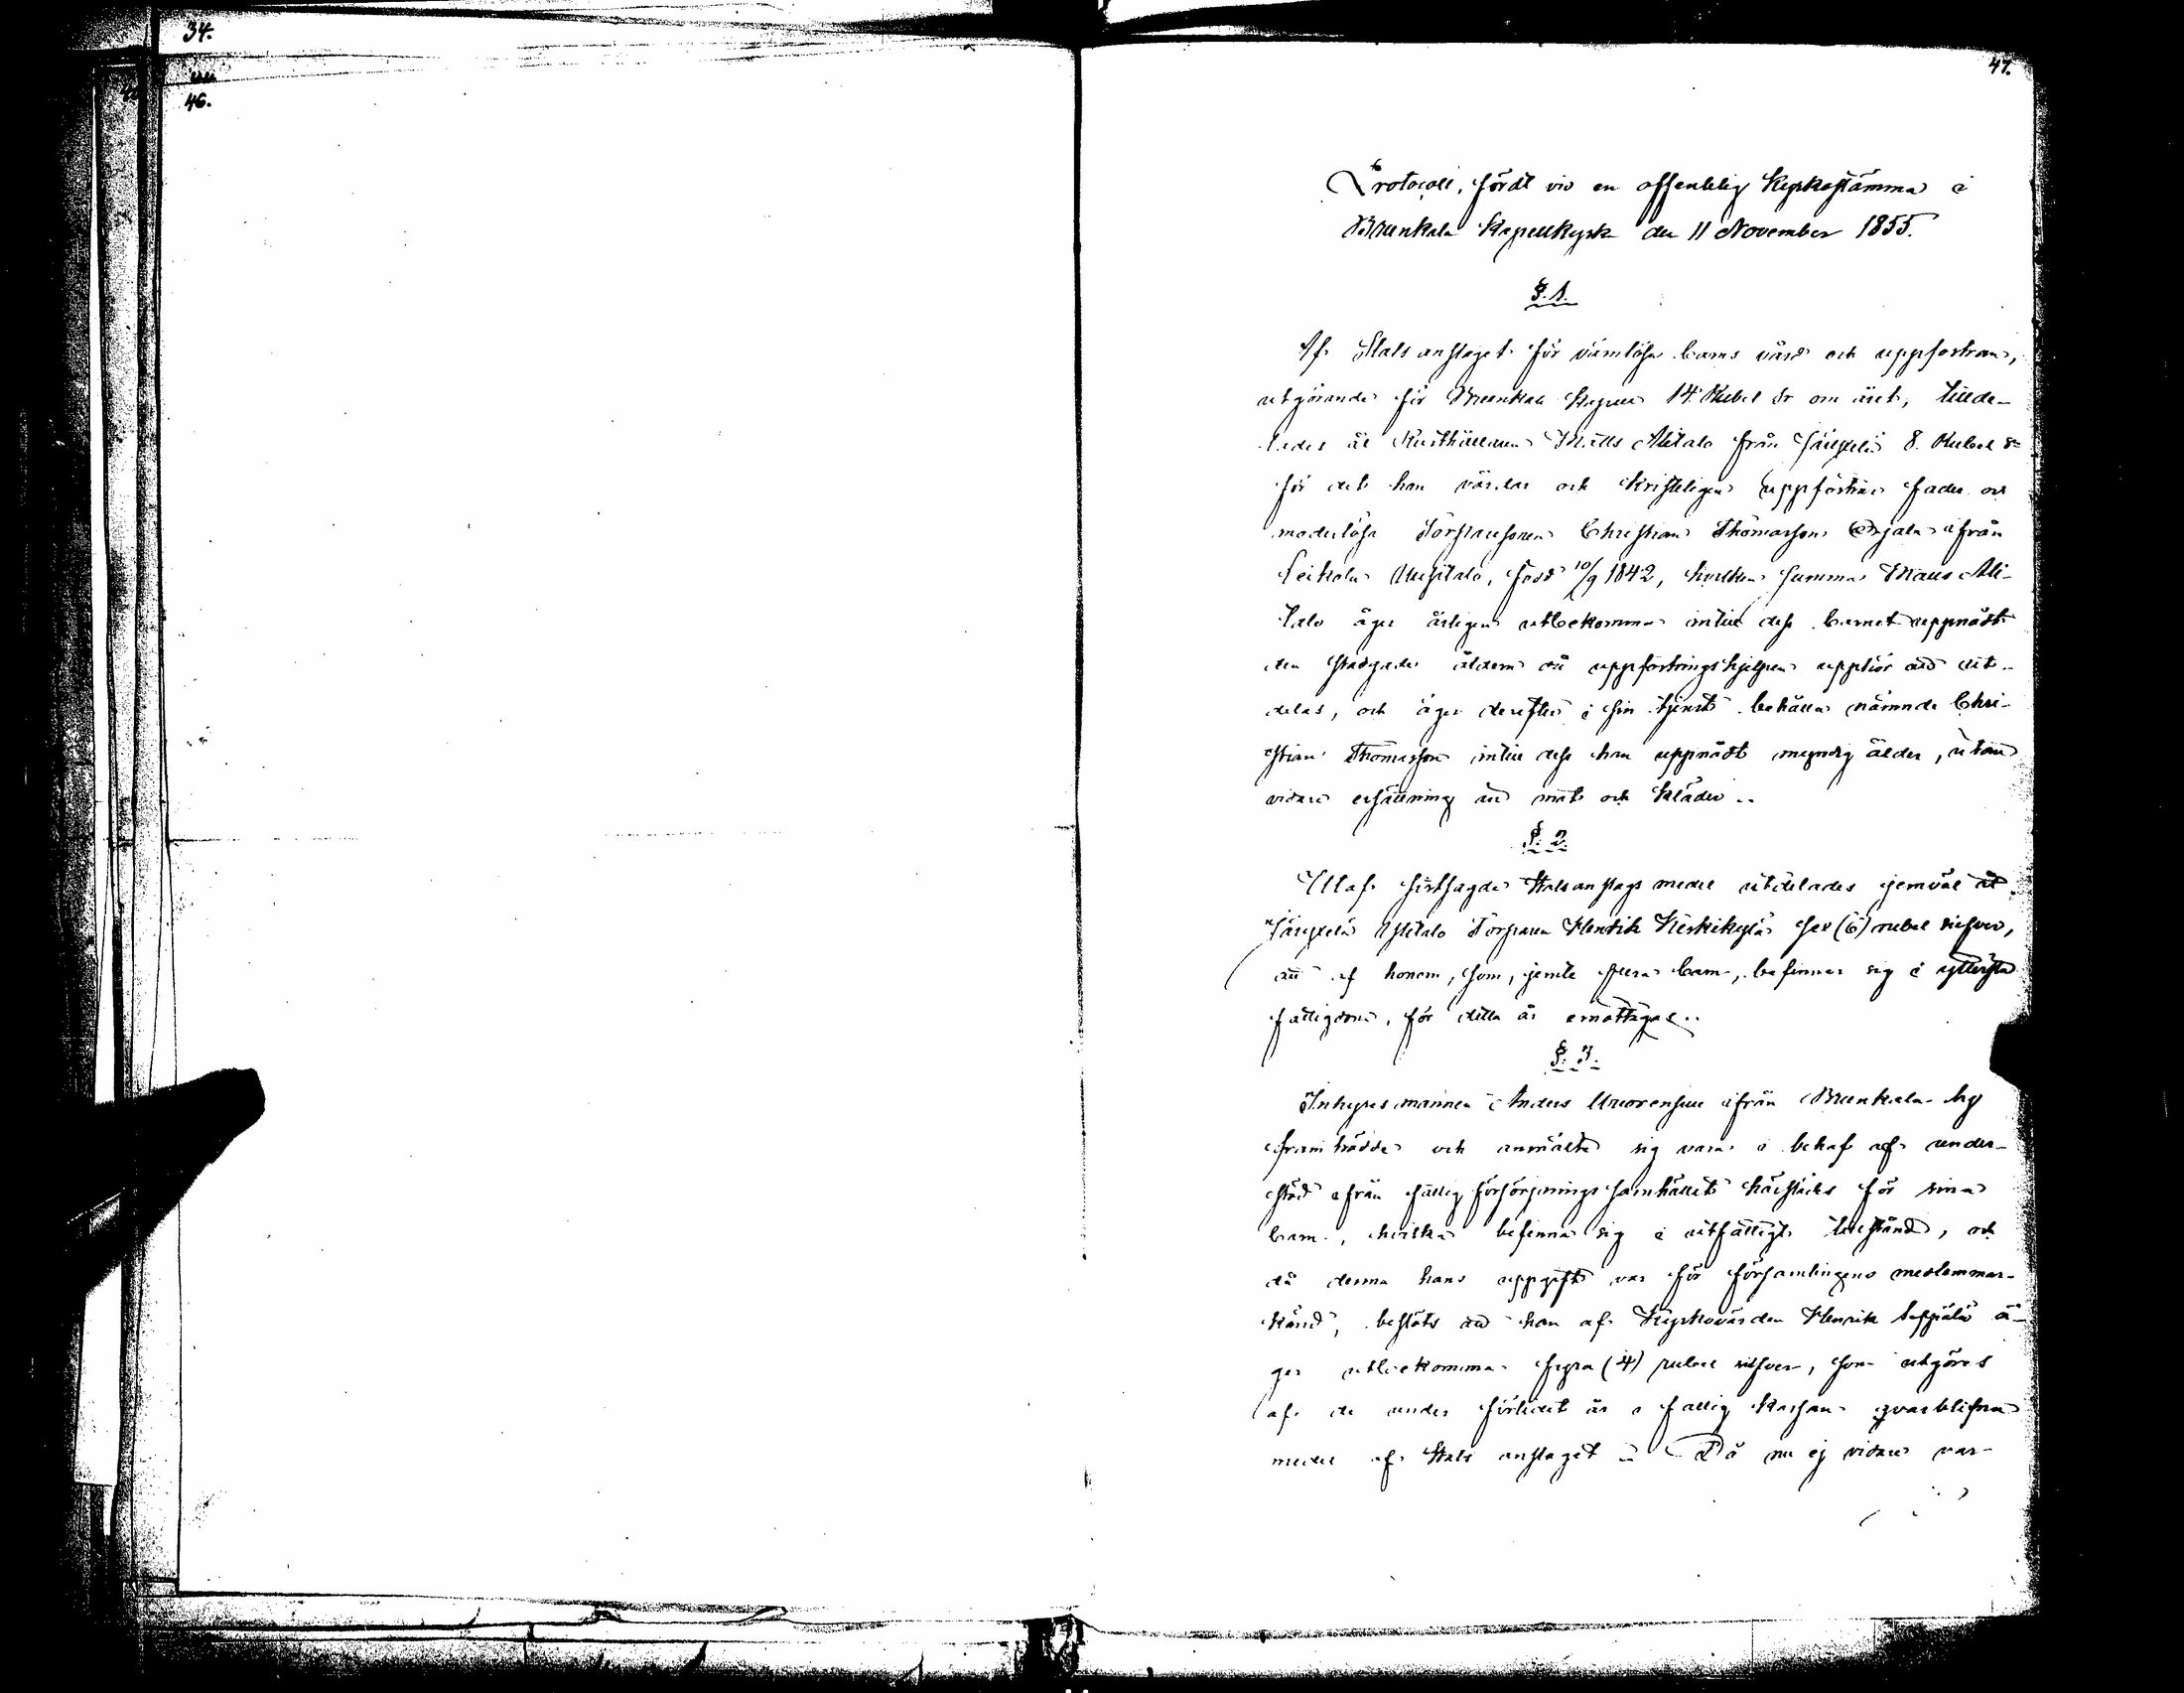 34.
46.
47.
Protocoll, fördt vid en offentelig Kyrkostämma i
Brunkala Kapellkyrka den 11 November 1855.
§. 1.
Af Stats anslaget för värnlösa barns vård och uppfostran,
utgörande för Brunkala Kapell 14 Rubel Sr om året, tillde-
lades åt Rusthållaren Matts Alitalo från 8. Rubel Sr
för det han vårdar och kristeligen uppfostrar fader och
moderlösa Torparesonen Christian Thomasson Orjala ifrån
Leikola Uusitalo, född 10/9 1842, hvilken summa Matts Ali-
talo äger årligen utbekomma intill dess barnet uppnådt
den stadgade åldern då uppfostringshjelpen upphör att ut-
delas, och äger derefter i sin tjenst behålla nämnde Chri-
stian Thomasson intill dess han uppnådt myndig ålder, utan
vidare ersättning än mat och kläder..
§. 2.
Utaf förstsagde Statsanslags medel utdelades jemväl åt
Ylitalo Torparen Henrik Keskikylä sex (6) rubel silfver,
att af honom, som, jemte flera barn, befinner sig i yttersta
fattigdom, för detta år emottagas..
§. 3.
Inhyresmannen Anders Uuorensuu ifrån Brunkala by
framträdde och anmälte sig vara i behof af under-
stöd ifrån fattigförsörjnings samhället härstädes för sina
barn, hvilka befinna sig i utfattigt tillstånd, och
då denna hans uppgift var för församlingens medlemmar
känd, beslöts att han af Kyrkovärden Henrik Seppälä ä-
ger utbekomma fyra (4) rubel silfver, som utgöres
af de under förlidet år i fattig Kassan qvarblifna
medel af Stats anslaget. Då nu ej vidare var